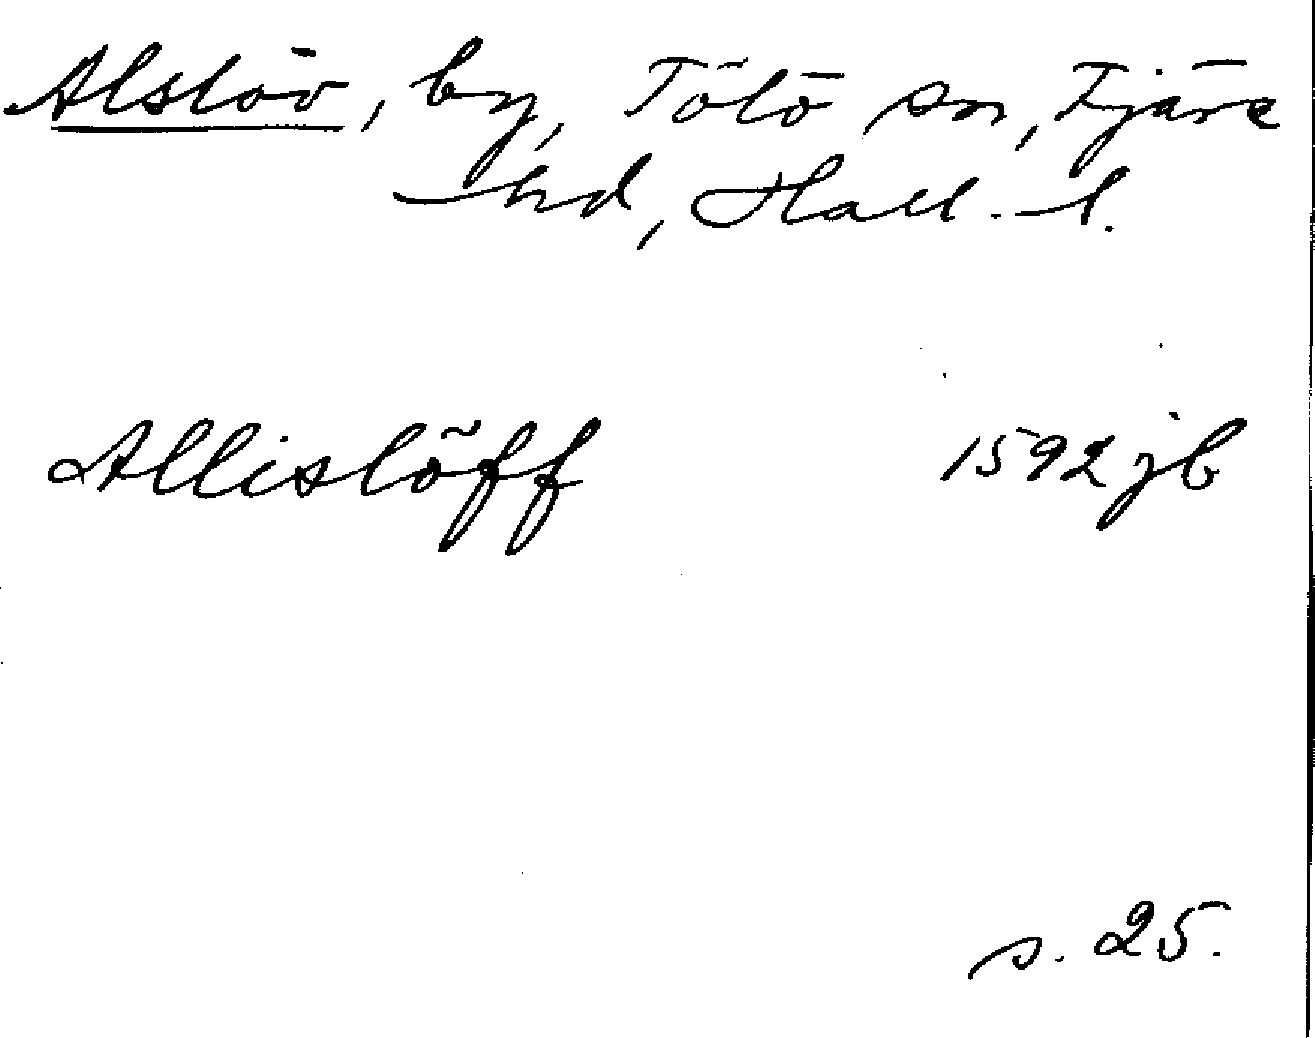 Alslöv, by, Tölö sn, Fjäre
hd, Hall. l.
Allislöff 1592 jb
s. 25.